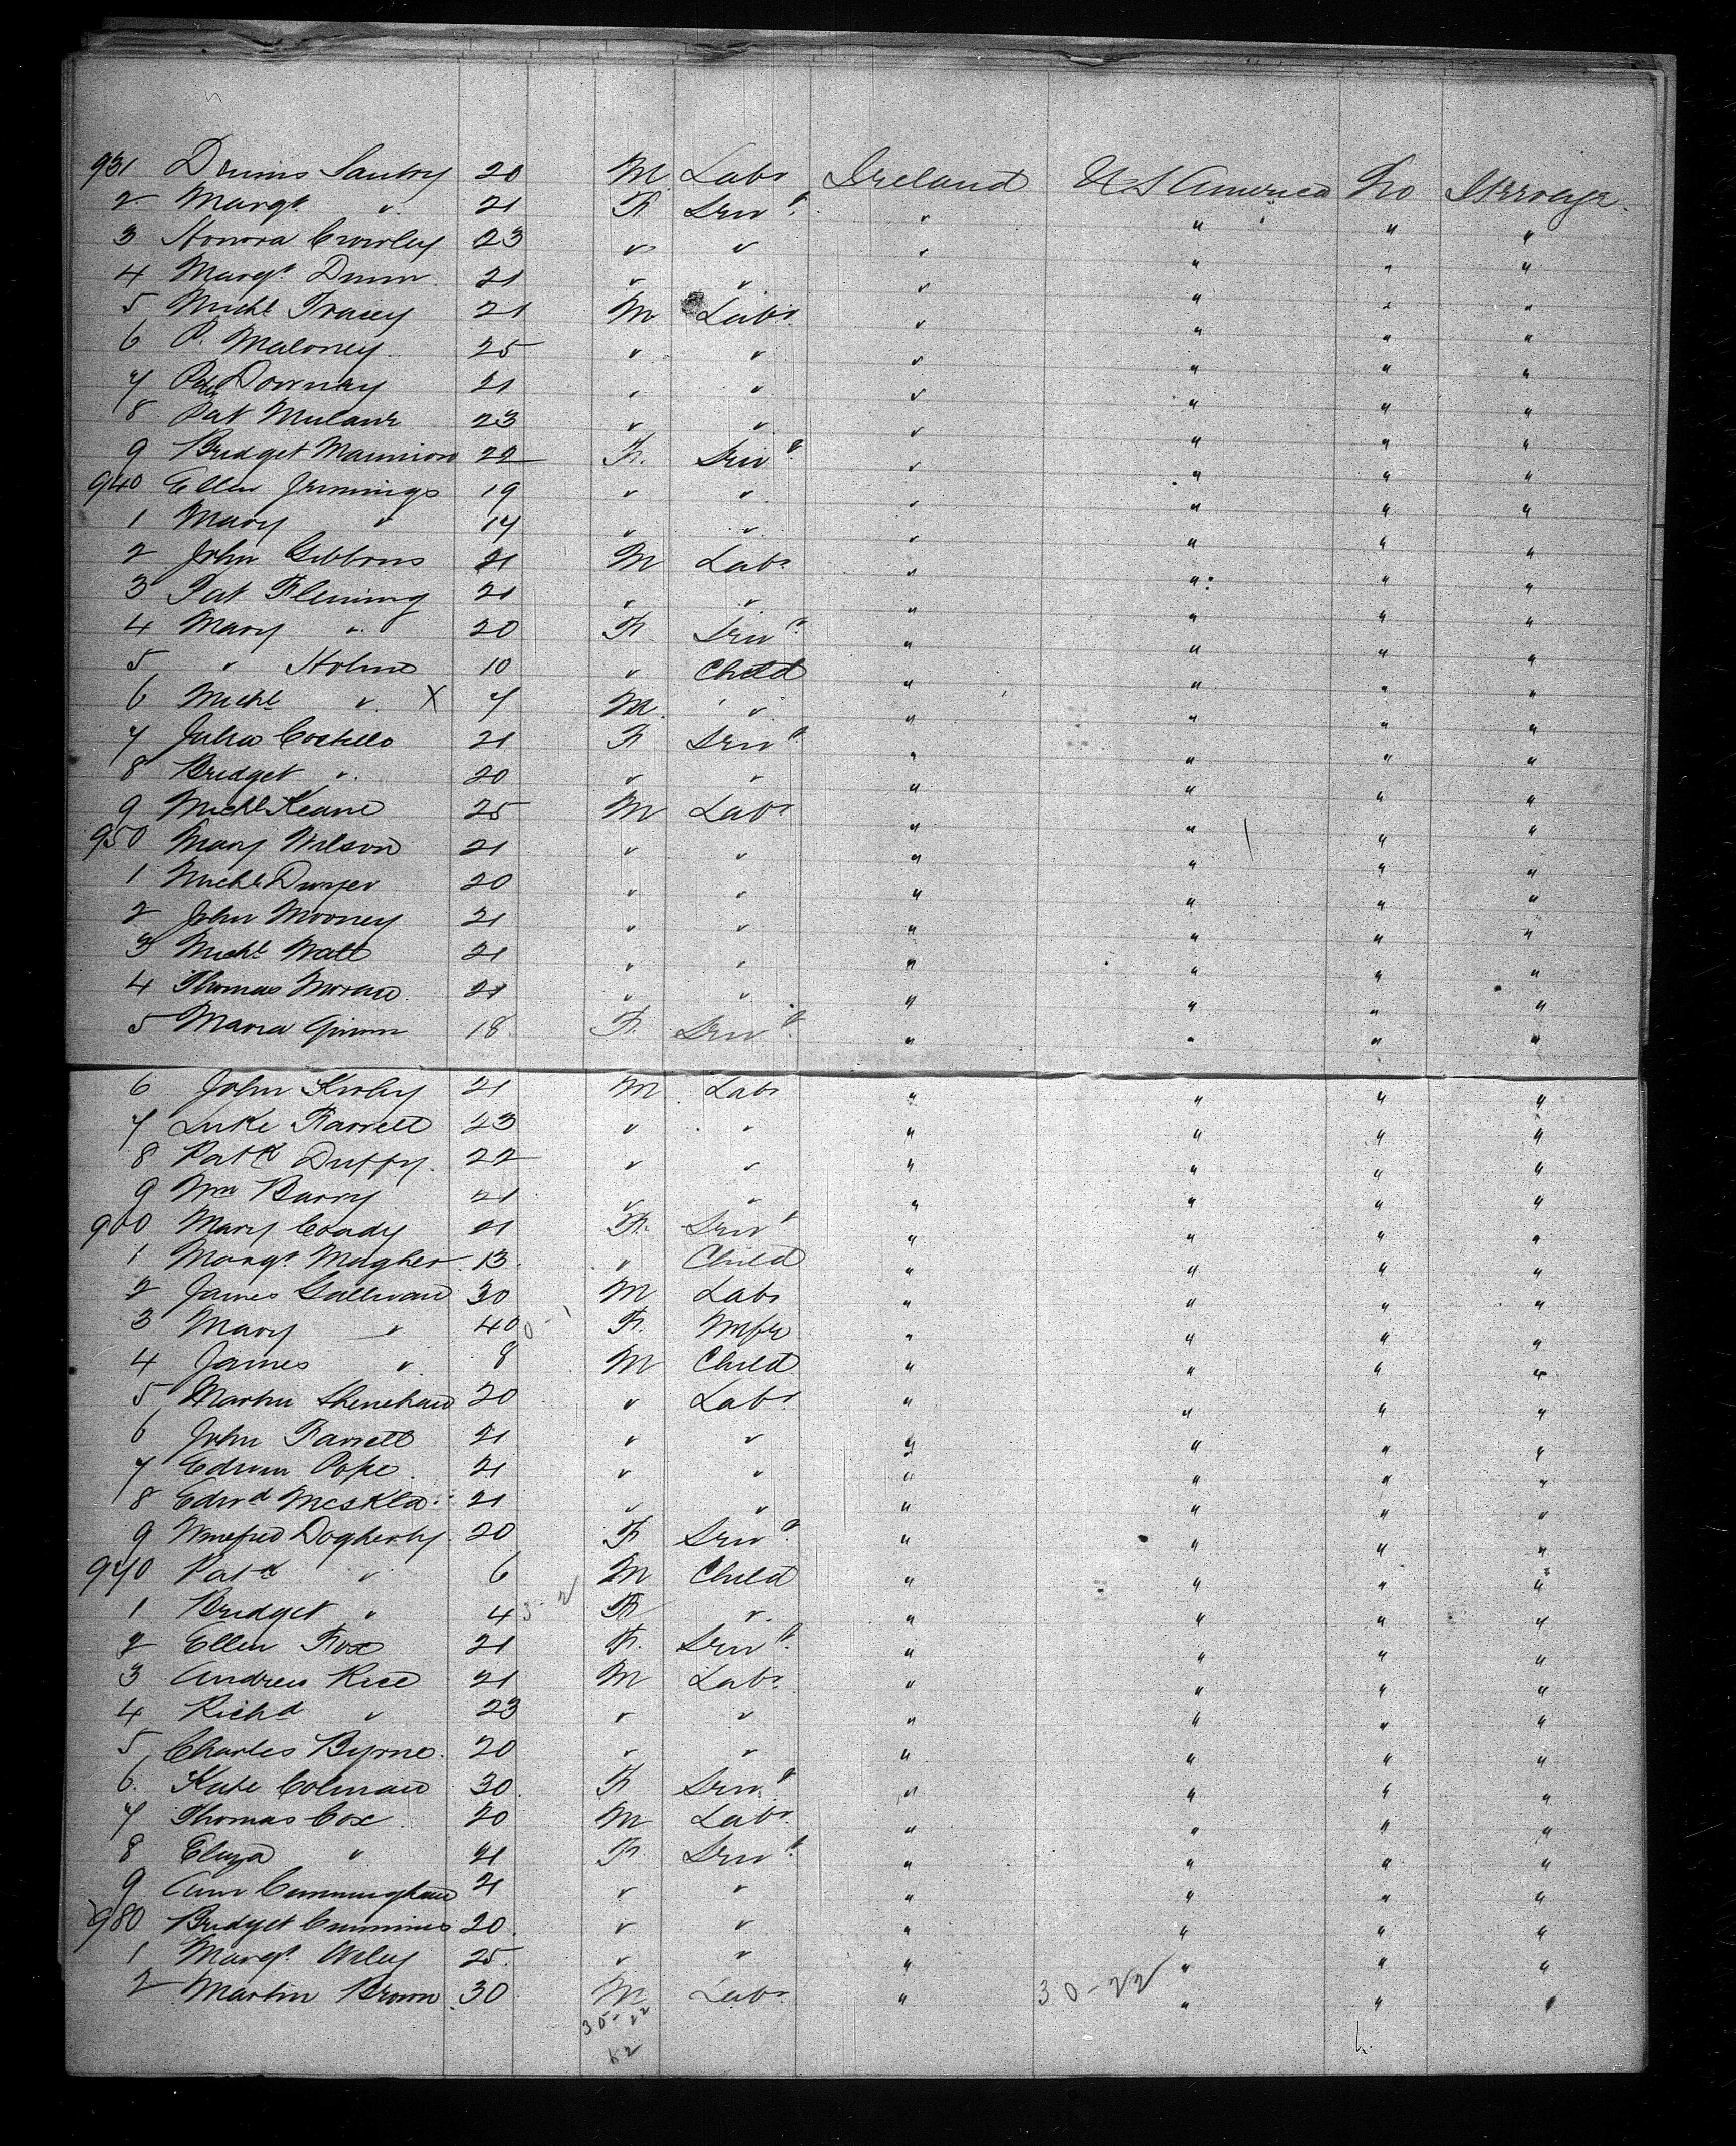 931 Dennis Santry 20 M Labr Ireland U S America No Steerage
2 Margt " 21 F Servt " " " "
3 Honora Crowley 23 " " " " " "
4 Margt Dunn 21 " " " " " "
5 Michl Tracey 21 M Labr " " " "
6 P. Maloney 25 " " " " " "
7 Downey 21 " " " " " "
8 Pat 23 " " " " " "
9 Bridget Mannion 22 F. Servt " " " "
940 Ellen Jennings 19 " " " " " "
1 Mary " 17 " " " " " "
2 John Gibbons 21 M Labr " " " "
3 Pat Fleming 21 " " " " " "
4 Mary " 20 F. Servt " " " "
5 " Holme 10 " Child " " " "
6 Michl " X 7 M. " " " " "
7 Julia Costello 21 F Servt " " " "
8 Bridget " 20 " " " " " "
9 Michl Keane 25 M Labr " " " "
950 Mary Wilson 21 " " " " " "
1 Michl Dwyer 20 " " " " " "
2 John Mooney 21 " " " " " "
3 Michl Wall 21 " " " " " "
4 Thomas Moran 21 " " " " " "
5 Maria 18 F. Servt " " " "
6 John Kirby 21 M Labr " " " "
7 Luke Farrell 23 " " " " " "
8 Patk Duffy. 22 " " " " " "
9 Wm Barry 21 " " " " " "
960 Mary Coady 21 F. Servt " " " "
1 Margt Magher 13 " Child " " " "
2 James Sullivan 30 M Labr " " " "
3 Mary " 40 F. Wife " " " "
4 James " 8 M Child " " " "
5 Martin Shenehan 20 " Labr " " " "
6 John Farrell 21 " " " " " "
7 Edwin Pope 21 " " " " " "
8 Edwd 21 " " " " " "
9 Winefred Dogherty 20 F Servt " " " "
970 Patk " 6 M Child " " " "
1 Bridget " 4 F " " " " "
2 Ellen Fox 21 F. Servt " " " "
3 Andrew Rice 21 M Labr " " " "
4 Richd " 23 " " " " " "
5 Charles Byrne 20 " " " " " "
6 Kate Colman 30 F Servt " " " "
7 Thomas Cox 20 M Labr " " " "
8 Eliza " 21 F. Servt " " " "
9 Ann Cunningham 21 " " " " " "
980 Bridget Cummins 20 " " " " " "
1 Margt Wiley 25 " " " " " "
2 Martin Brown 30 M Labr " " " "
30-22
30-22